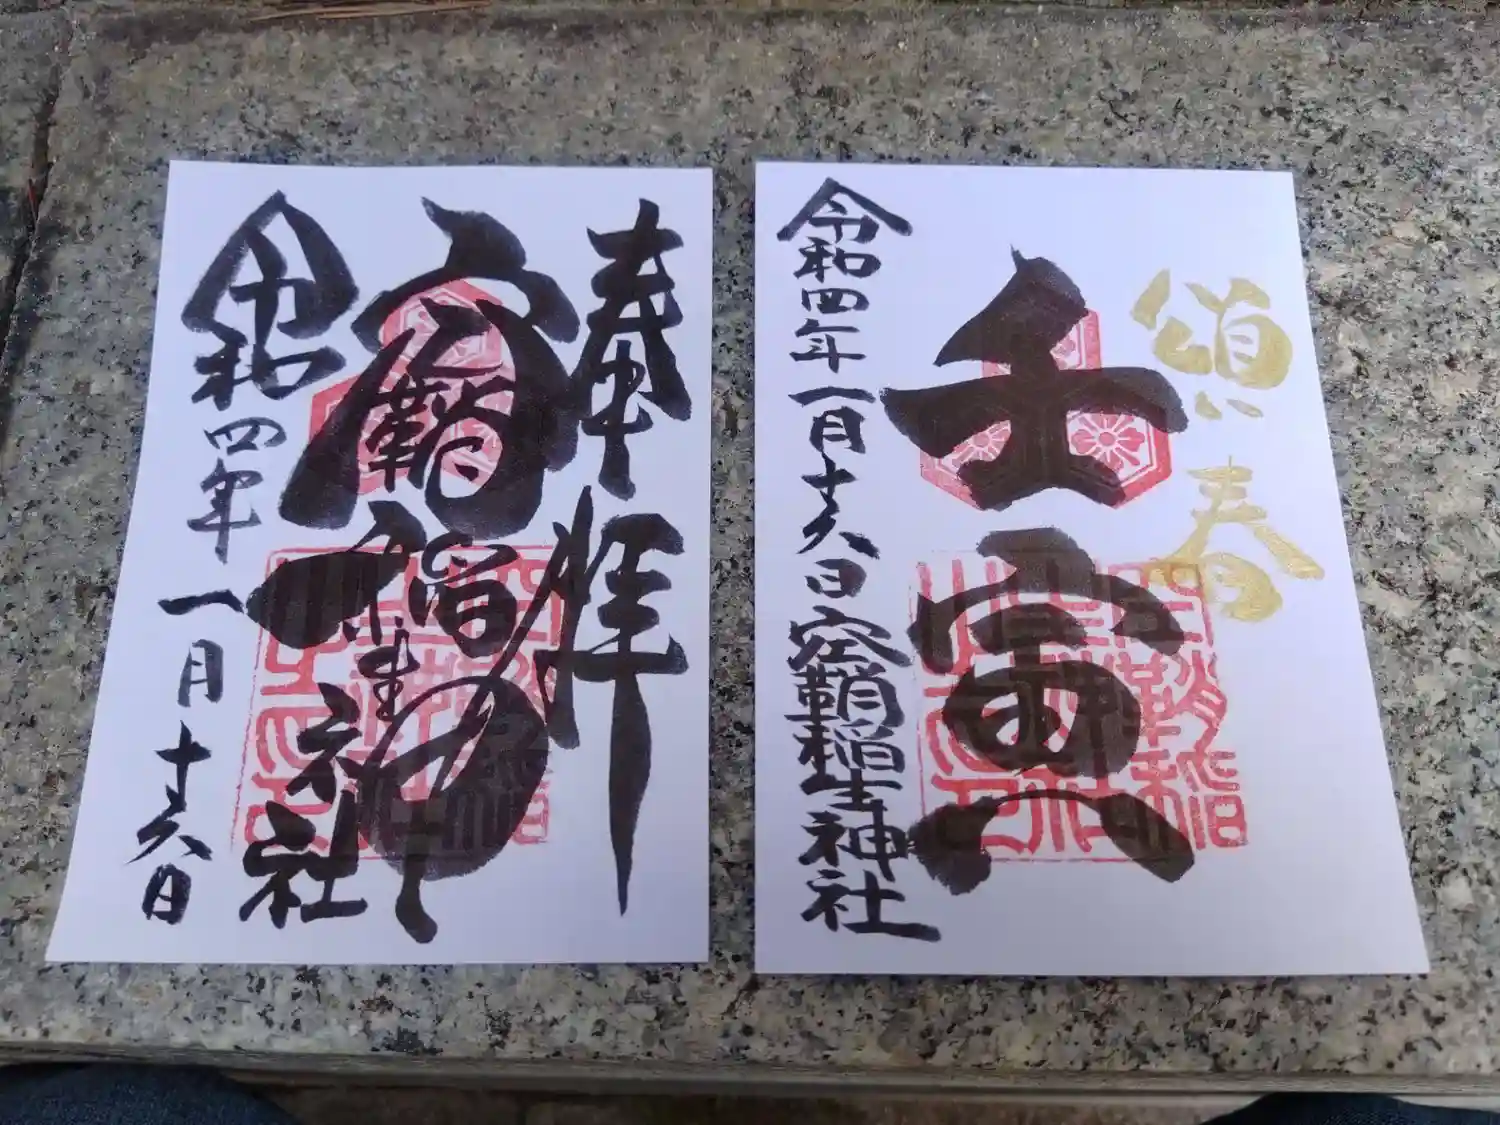 奉拝
空鞘稲生神社
令和四年一月十六日
頌春
壬寅
令和四年一月十六日空鞘稲生神社